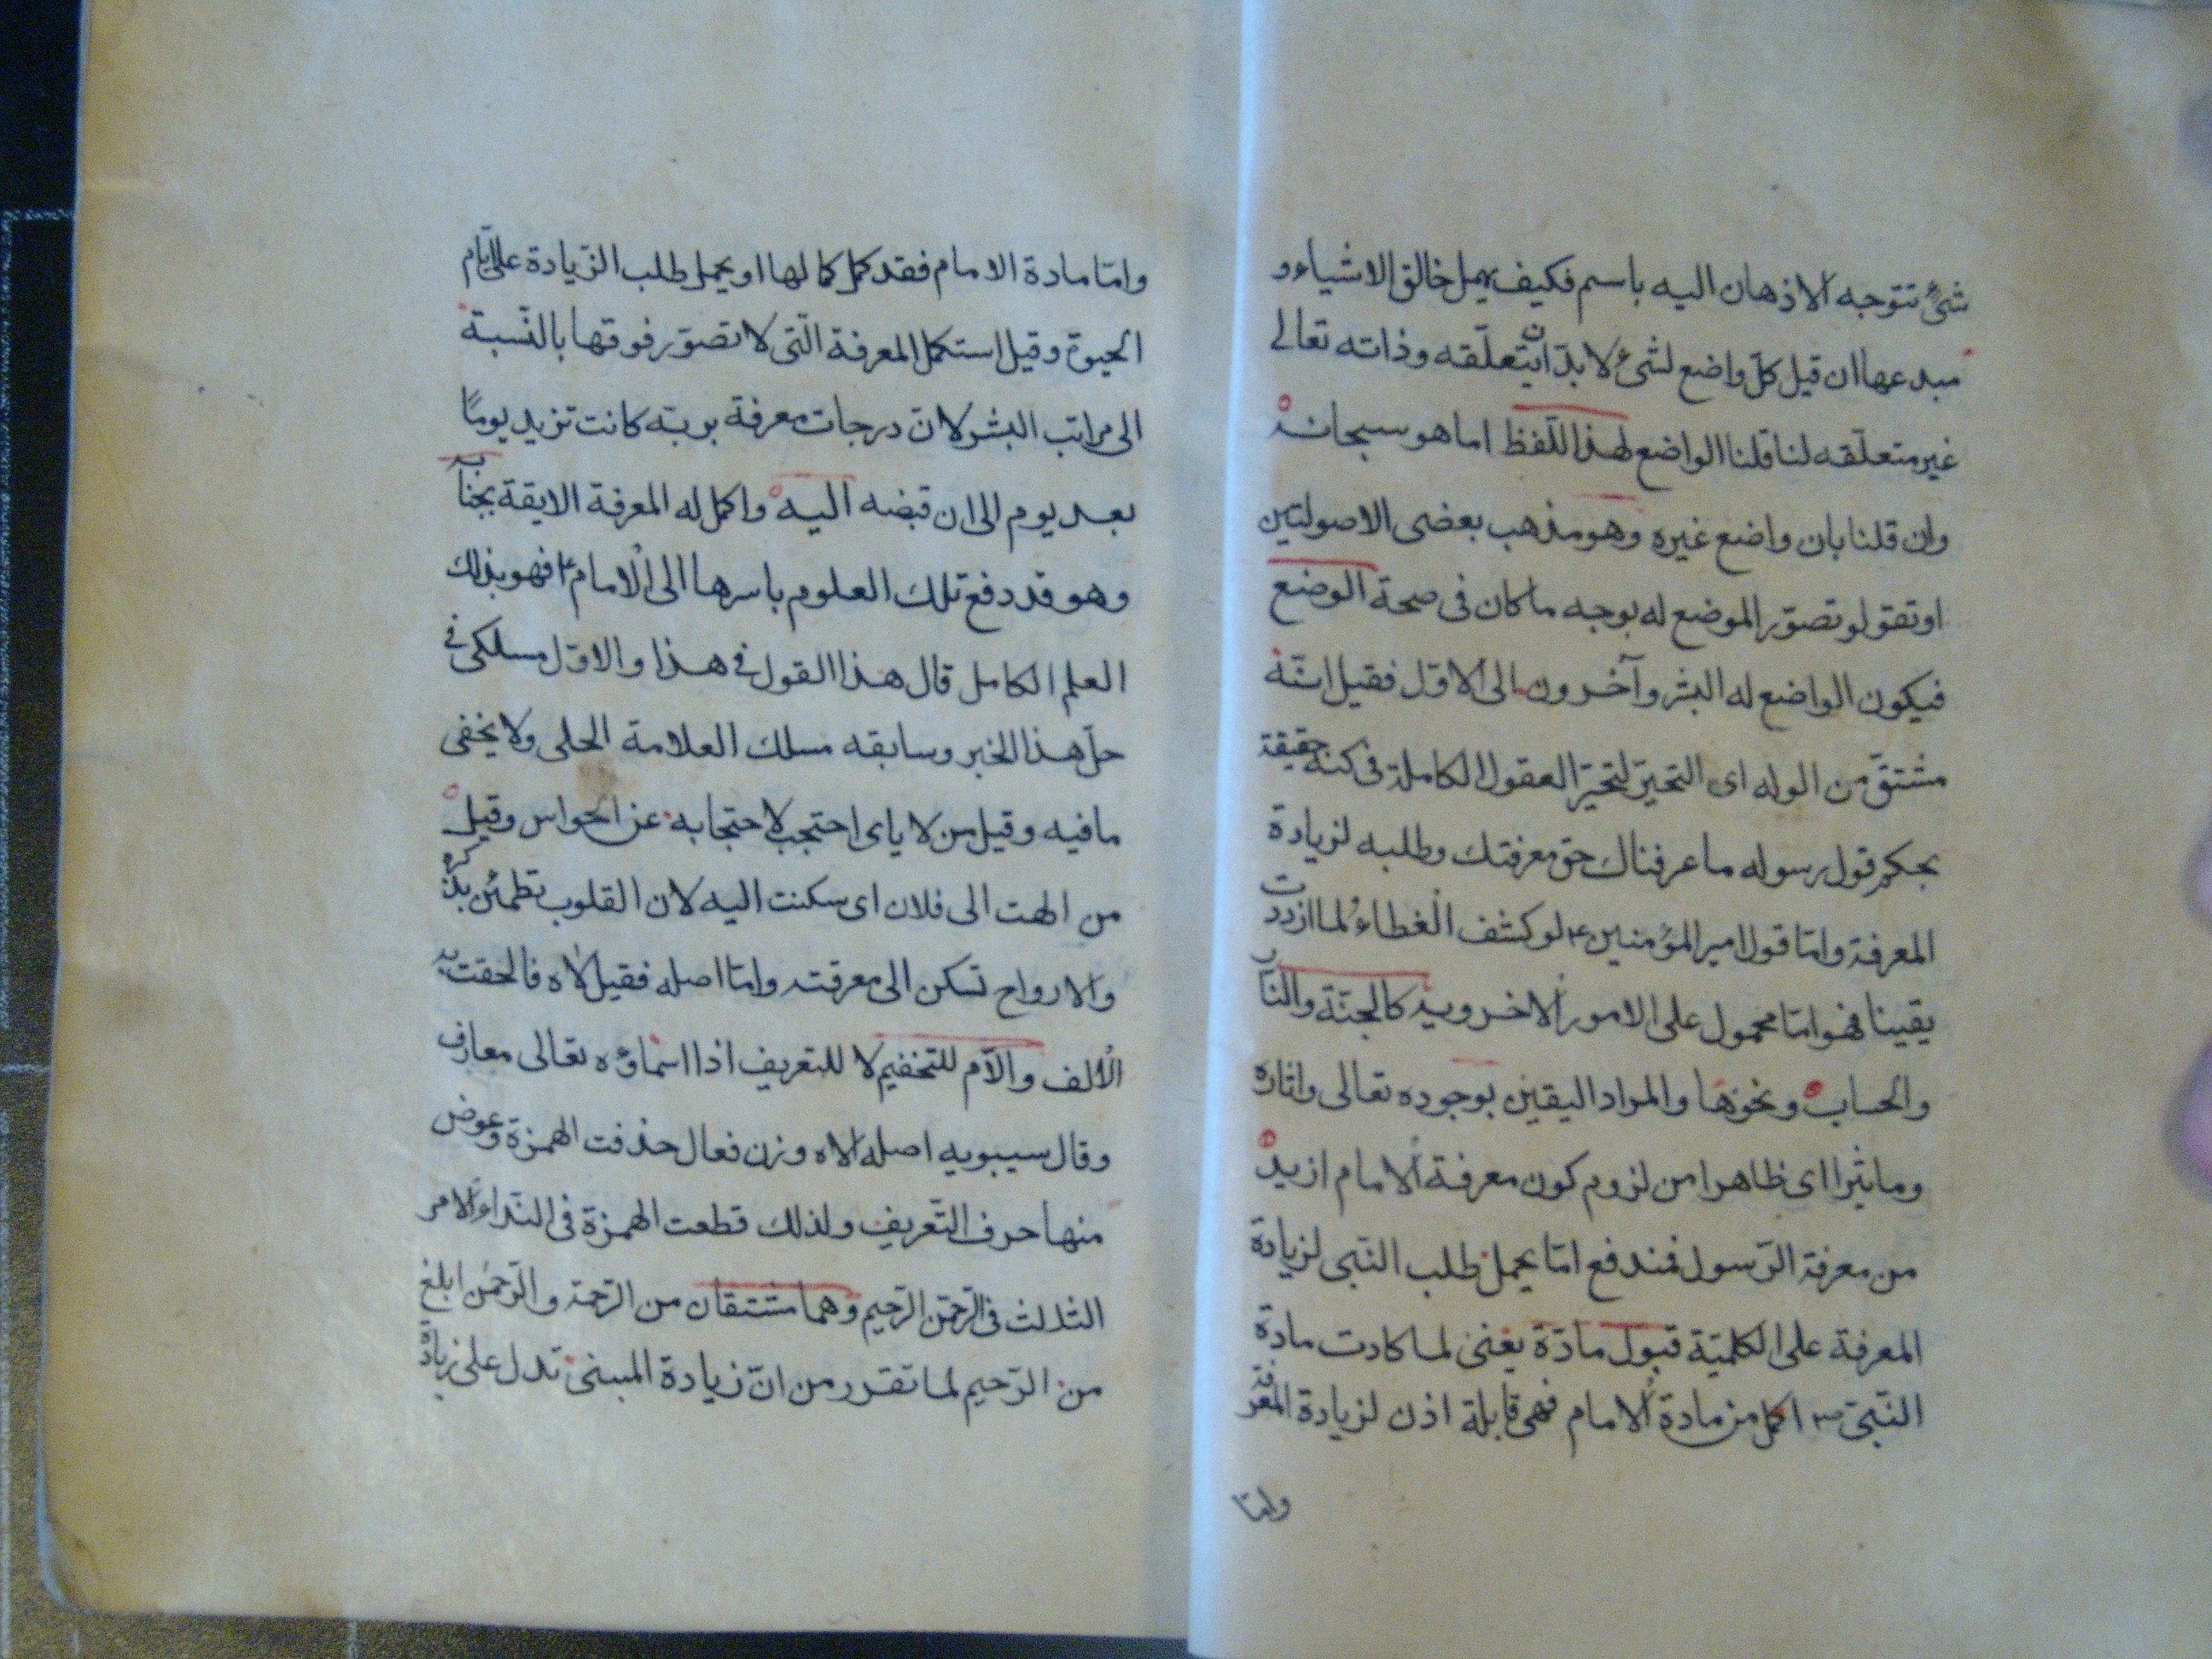 شئ تتوجه الاذهان اليه باسم فكيف يهمل خالق الاشياء و
مبدعها ان قيل كل واضع لشئ لا بد ان يتعلقه وذاته تعالى
غير متعلقه لنا قلنا الواضع لهذا اللفظ اما هو سبحانه
وان قلنا بان واضع غيره وهو مذهب بعض الاصوليين
او تقول تصور الموضع له بوجه ما كان فى صحة الوضع
فيكون الواضع له البشر وآخرون الى الاول فقيل انه
مشتق من الوله اى التحير لتحير العقول الكاملة فى كنه حقيقة
بحكم قول رسوله ما عرفناك حق معرفتك وطلبه لزيادة
المعرفة واما قول امير المؤمنين ع لو كشف الغطاء لما ازددت
يقينا فهو اما محمول على الامور الاخروية كالجنة والنار
والحساب ونحوها والمراد اليقين بوجوده تعالى واثاره
وما يثرا اى ظاهرا من لزوم كون معرفة الامام ازيد
من معرفة الرسول فمندفع اما يحمل طلب النبى لزيادة
المعرفة على الكلمية قبول مادة يعنى لما كادت مادة
النبى ص اكمل من مادة الامام فهى قابلة اذن لزيادة المعرفة
واما
واما مادة الامام فقد كمل كمالها او يحمل طلب الزيادة على ايام
الحيوة وقيل استكمل المعرفة التى لا تصور فوقها بالنسبة
الى مراتب البشر لان درجات معرفة بربه كانت تزيد يوما
بعد يوم الى ان قبضه اليه واكمل له المعرفة الايقة بجنابه
وهو قد دفع تلك العلوم باسرها الى الامام ع فهو بذلك
العلم الكامل قال هذا القول فى هذا والاول مسلكى فى
حل هذا الخبر وسابقه مسلك العلامة الحلى ولا يخفى
ما فيه وقيل من لاياى احتجب لاحتجابه عن الحواس وقيل
من الهت الى فلان اى سكنت اليه لان القلوب تطمئن بذكره
والارواح تسكن الى معرفته واما اصله فقيل لاه فالحقت به
الالف واللام للتخفيم لا للتعريف اذا اسماؤه تعالى معارف
وقال سيبويه اصله الاه وزن فعال حذفت الهمزة وعوض
منها حرف التعريف ولذلك قطعت الهمزة فى النداء الامر
الثلث فى الرحمن الرحيم وهما مشتقان من الرحمة والرحمن ابلغ
من الرحيم لما تقرر من ان زيادة المبنى تدل على زيادة